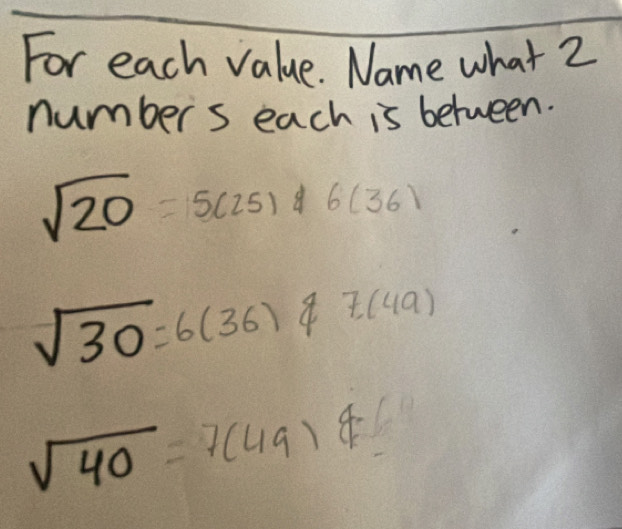 For each value. Name what 2
numbers each is between.
√20 = 5(25) & 6(36)
√30 = 6(36) & 7(49)
√40 = 7(49) &